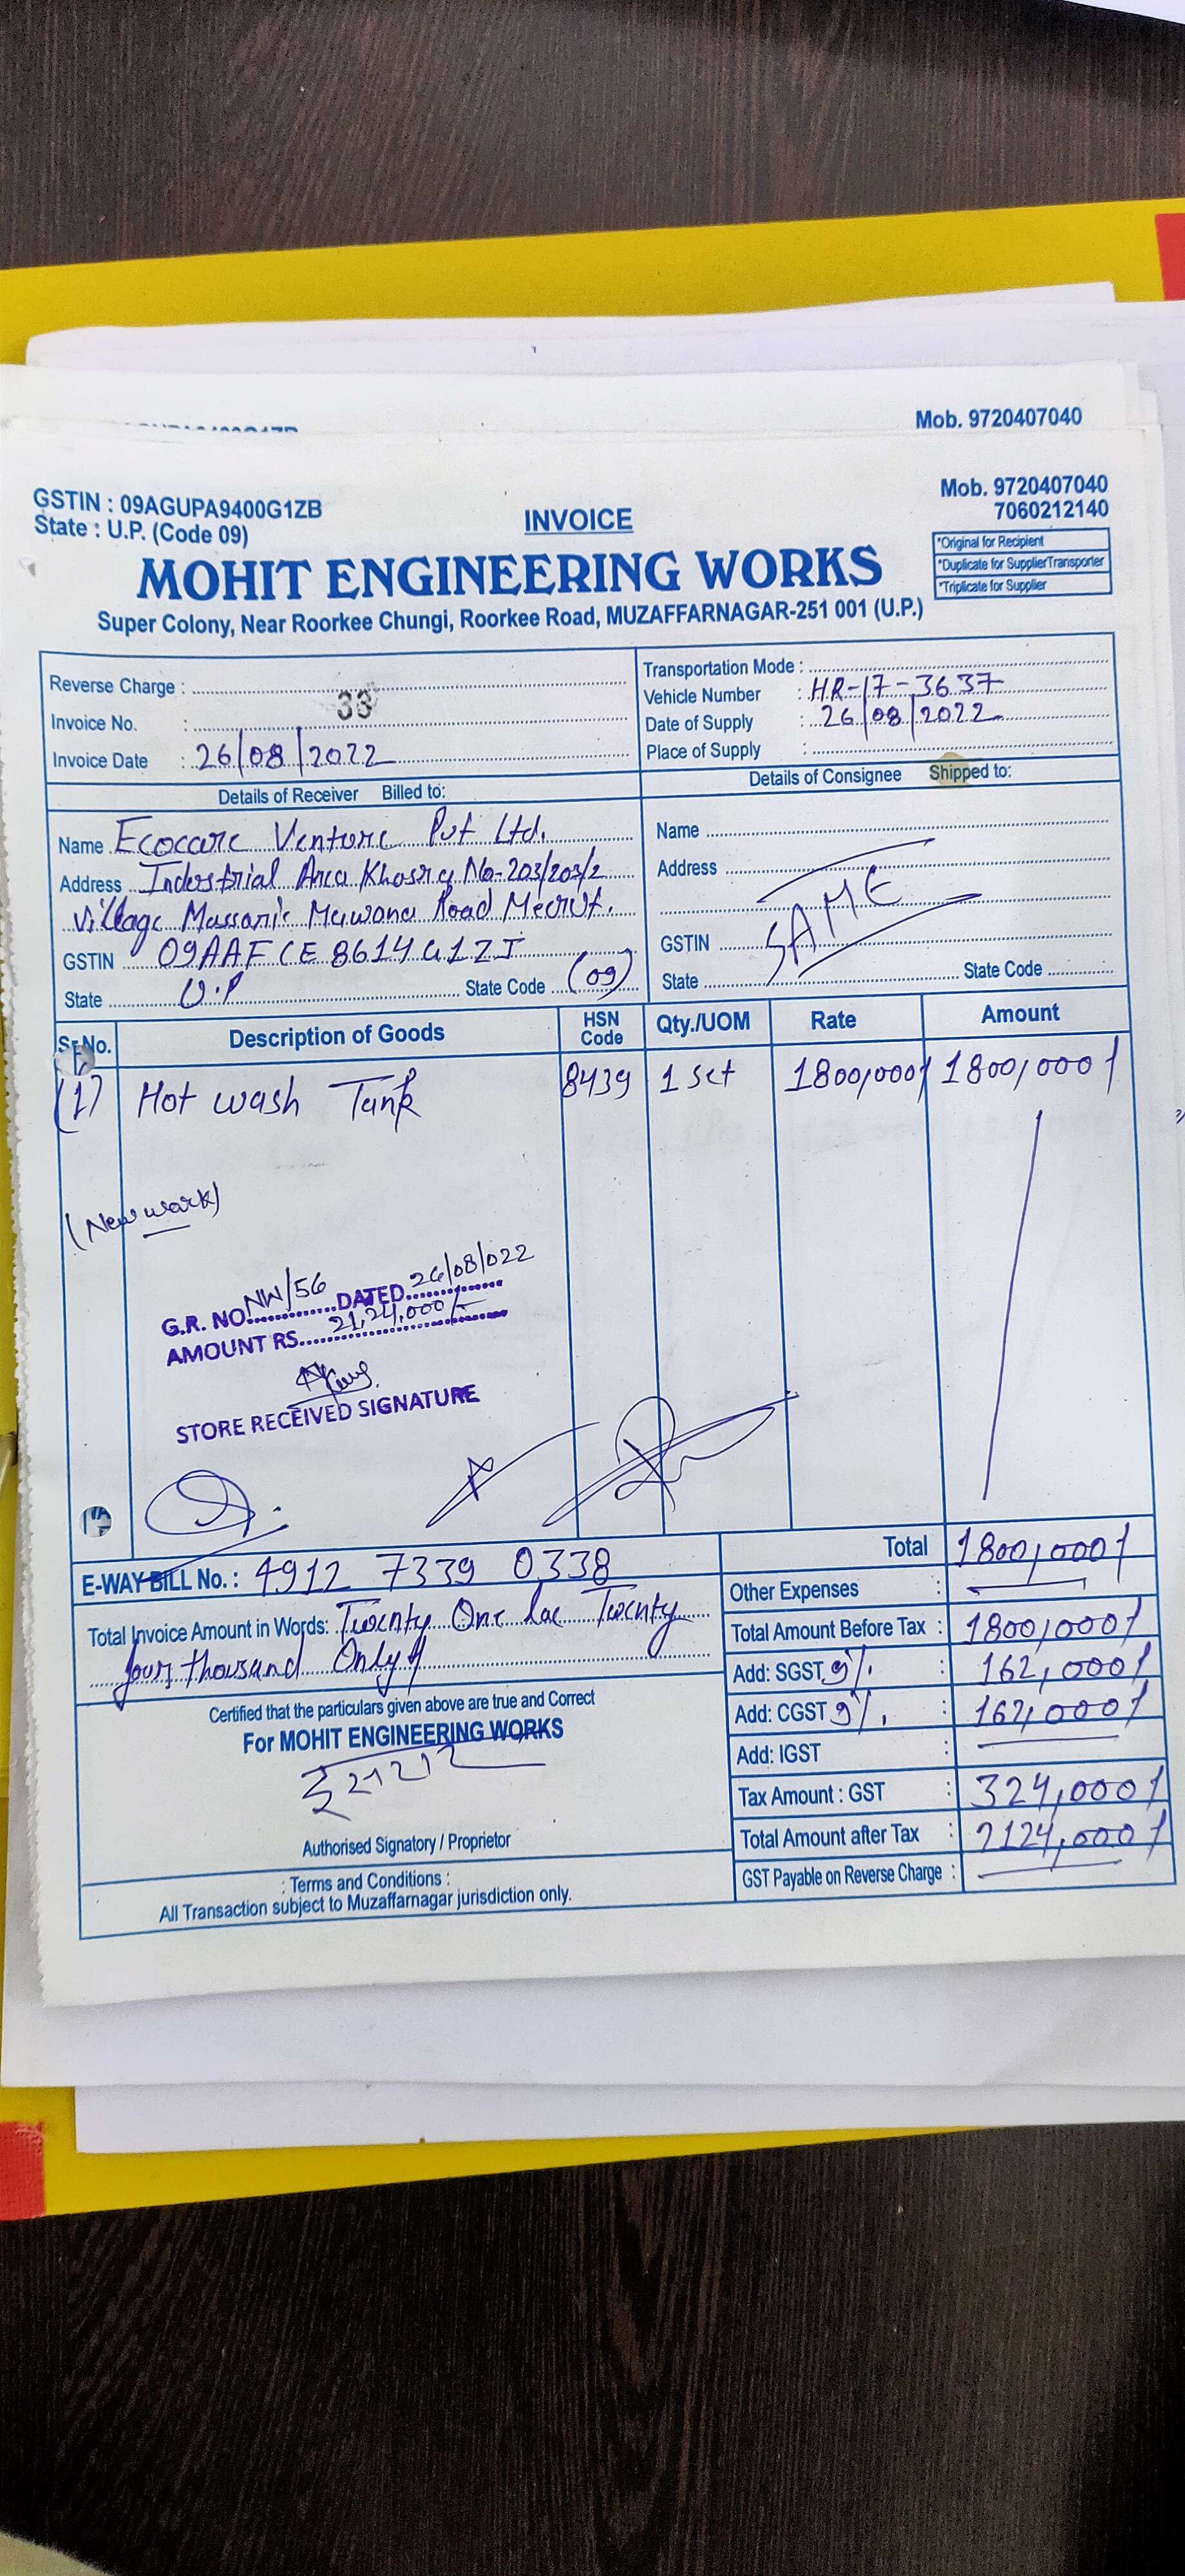 Mob. 9720407040
GSTIN : 09AGUPA9400G1ZB
State : U.P. (Code 09)
INVOICE
Mob. 9720407040
7060212140
*Original for Recipient
*Duplicate for SupplierTransporter
*Triplicate for Supplier
MOHIT ENGINEERING WORKS
Super Colony, Near Roorkee Chungi, Roorkee Road, MUZAFFARNAGAR-251 001 (U.P.)
Reverse Charge :
Invoice No. : 33
Invoice Date : 26/08/2022
Transportation Mode :
Vehicle Number : HR-17-3637
Date of Supply : 26/08/2022
Place of Supply :
Details of Receiver Billed to:
Details of Consignee Shipped to:
Name Ecocare Venture Pvt Ltd.
Address Industrial Area Khasra No-203/203/2
Village Mawana Road Meerut.
GSTIN 09AAFCE8614G1ZJ
State U.P State Code (09)
Name
Address
SAME
GSTIN
State State Code
Sr.No. Description of Goods HSN Code Qty./UOM Rate Amount
(1) Hot wash Tank 8439 1 Set 1800,000/ 1800,000/
(New work)
G.R. NO. NW/56 DATED 26/08/022
AMOUNT RS. 21,24,000/-
STORE RECEIVED SIGNATURE
E-WAY BILL No. : 4912 7339 0338
Total Invoice Amount in Words: Twenty One Lac Twenty
four thousand Only/
Certified that the particulars given above are true and Correct
For MOHIT ENGINEERING WORKS
Authorised Signatory / Proprietor
: Terms and Conditions :
All Transaction subject to Muzaffarnagar jurisdiction only.
Total 1800,000/
Other Expenses :
Total Amount Before Tax : 1800,000/
Add: SGST 9%. : 162,000/
Add: CGST 9%. : 162,000/
Add: IGST :
Tax Amount : GST : 324,000/
Total Amount after Tax : 2124,000/
GST Payable on Reverse Charge :